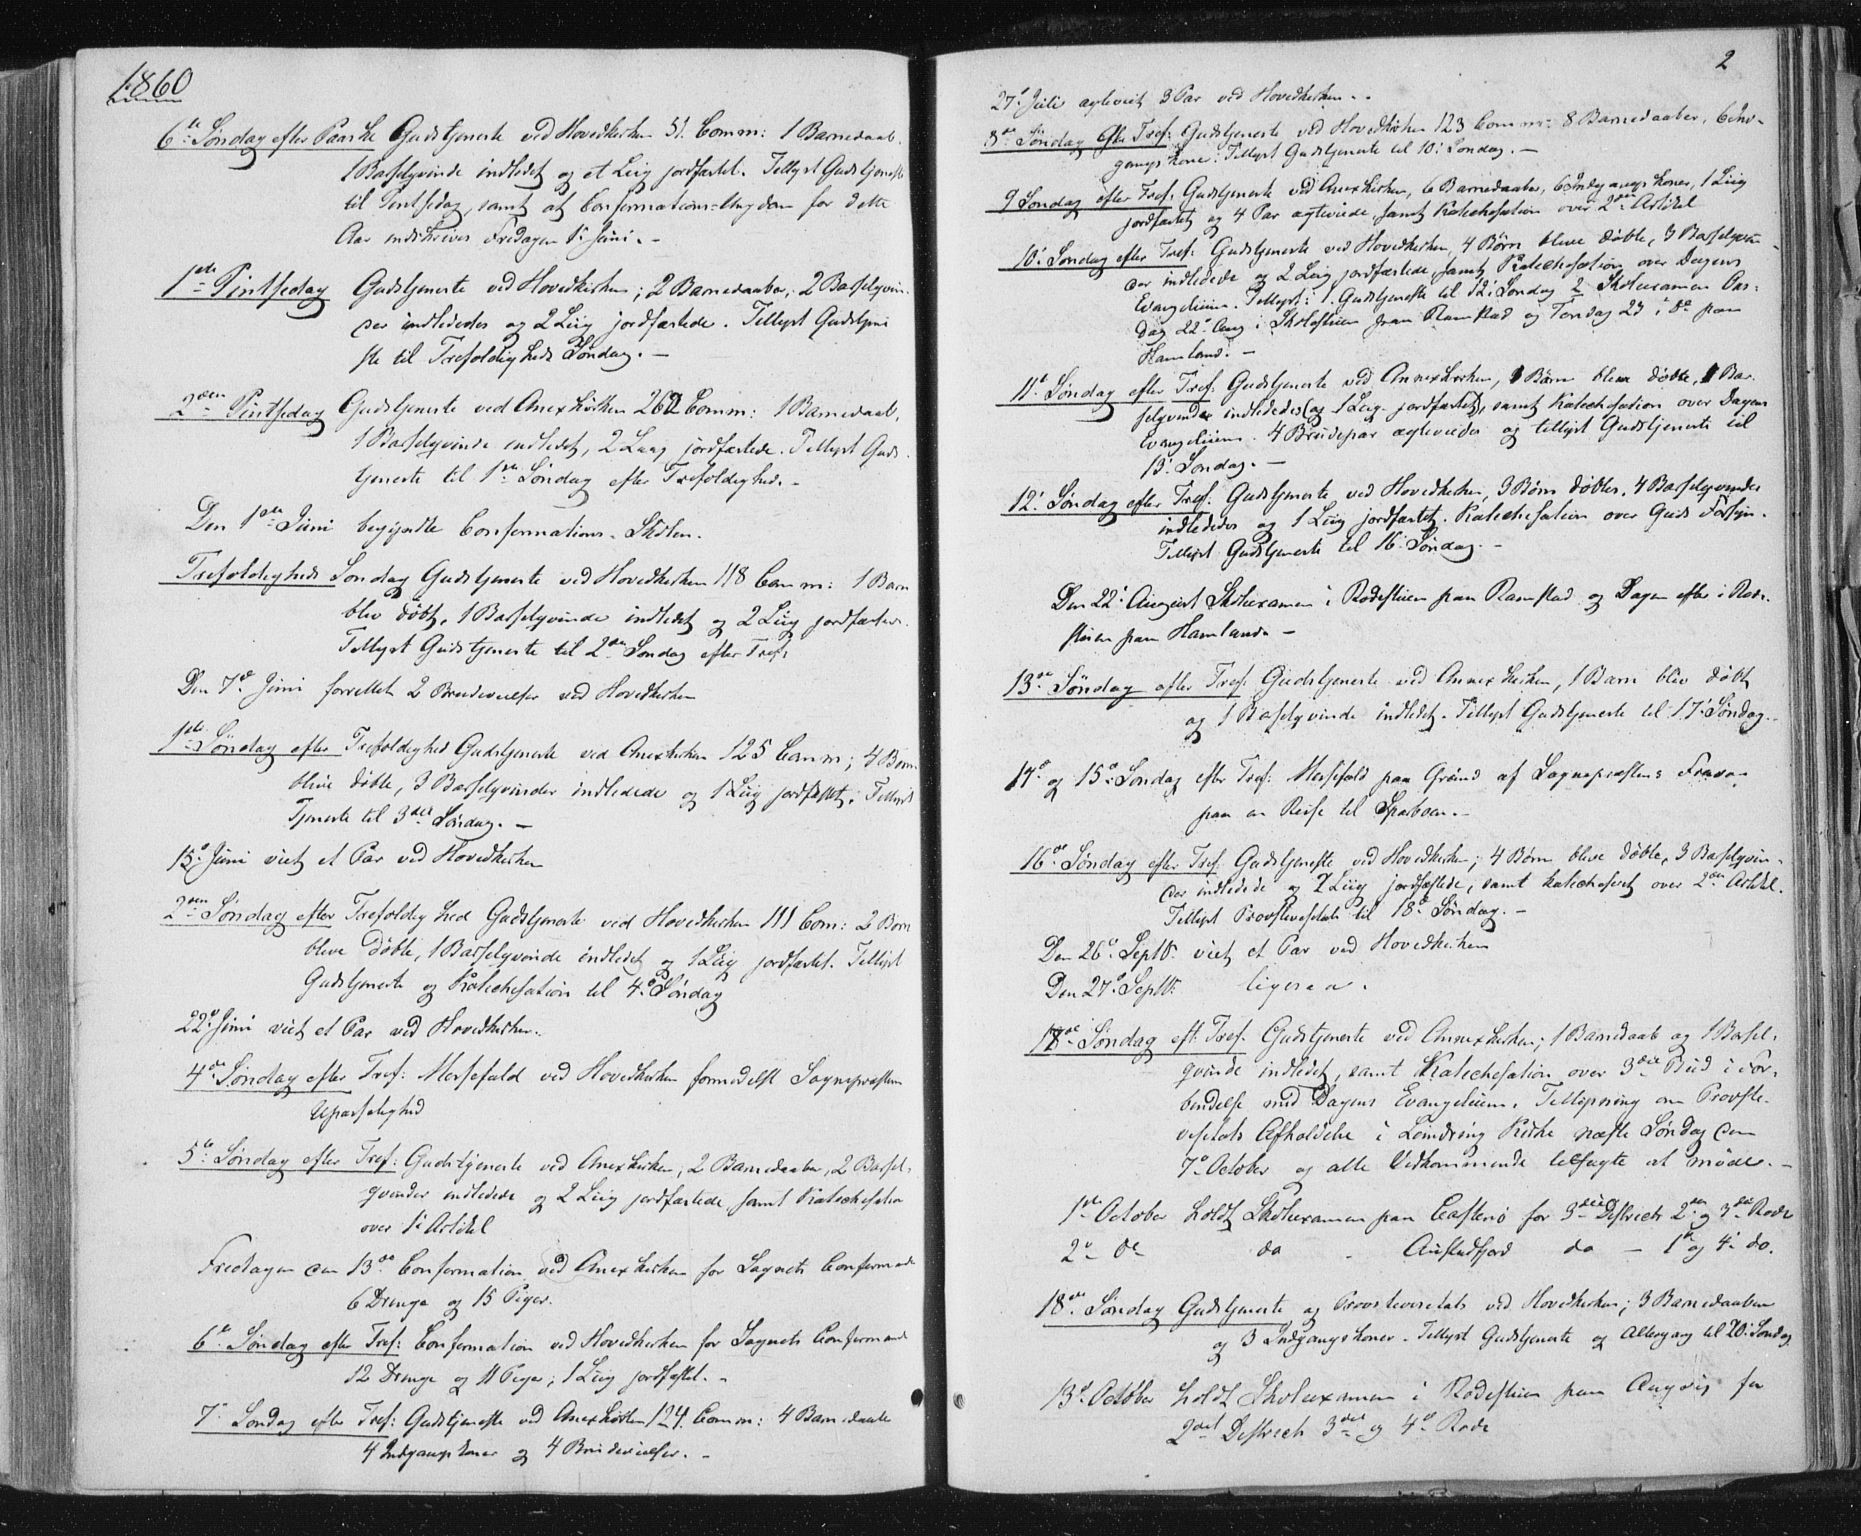 1860
6te Søndag efter Paaske Gudstjeneste ved Hovedkirken 51 Comm: 1 Barnedaab,
1 Barselqvinde indledet og et Liig jordfæstet. Tillyst Gudstjeneste
til Pintsedag, samt at Confirmations-Ungdom for dette
Aar indskrives Fredagen 1ste Juni. -
1ste Pintsedag Gudstjeneste ved Hovedkirken; 2 Barnedaaber, 2 Barselqvin-
der indlededes og 2 Liig jordfæstede. Tillyst Gudstjene
ste til Trefoldigheds Søndag. -
2den Pintsedag Gudstjeneste ved Anexkirken 262 Comm: 1 Barnedaab,
1 Barselqvinde indledet, 2 Liig jordfæstede. Tillyst Guds-
tjeneste til 1ste Søndag efter Trefoldighed. -
Den 1ste Juni begyndte Confirmations-Skolen.
Trefoldigheds Søndag Gudstjeneste ved Hovedkirken 118 Comm: 1 Barn
blev døbt, 1 Barselqvinde indledet og 2 Liig jordfæstede.
Tillyst Gudstjeneste til 2den Søndag efter Tref:
Den 7de Juni forrettet 2 Brudevielser ved Hovedkirken
1ste Søndag efter Trefoldighed Gudstjeneste ved Anexkirken 125 Comm; 4 Børn
bleve døbte, 3 Barselqvinder indledede og 1 Liig jordfæstet; Tillyst
Tjeneste til 3die Søndag. -
15de Juni viet et Par ved Hovedkirken
2den Søndag efter Trefoldighed Gudstjeneste ved Hovedkirken 111 Com: 2 Børn
bleve døbte, 1 Barselqvinde indledet og 1 Liig jordfæstet. Tillyst
Gudstjeneste og Katechesation til 4de Søndag
22de Juni viet et Par ved Hovedkirken.
4de Søndag efter Tref: Messefald ved Hovedkirken formedelst Sognepræstens
Upasselighed
5te Søndag efter Tref: Gudstjeneste ved Anexkirken, 2 Barnedaaber, 2 Barsel-
qvinder indledede og 2 Liig jordfæstede, samt Katechesation
over 1ste Artikel
Fredagen den 13de Confirmation ved Anexkirken for Sognets Confirmande
6 Drenge og 15 Piger.
6te Søndag efter Tref: Confirmation ved Hovedkirken for Sognets Confirmande
12 Drenge og 11 Piger; 1 Liig jordfæstet. -
7de Søndag efter Tref: Gudstjeneste ved Anexkirken 124 Comm: 4 Barnedaabe
4 Indgangskoner og 4 Brudevielser. -
2
27de Juli ægteviet 3 Par ved Hovedkirken. -
8de Søndag efter Tref: Gudstjeneste ved Hovedkirken 123 Comm: 8 Barnedaaber, 6 Ind-
gangskoner. Tillyst Gudstjeneste til 10de Søndag. -
9 Søndag efter Tref: Gudstjeneste ved Anexkirken, 6 Barnedaaber, 6 Indgangskoner, 1 Liig
jordfæstet og 4 Par ægteviede, samt Katechesation over 2den Artikel
10de Søndag efter Tref: Gudstjeneste ved Hovedkirken, 4 Børn bleve døbte, 3 Barselqvin
der indledede og 2 Liig jordfæstede, samt Katechesation over Dagens
Evangelium. Tillyst: 1. Gudstjeneste til 12te Søndag 2 Skoleexamen Ons-
dag 22de Aug i Skolestuen paa Ramstad og Torsdag 23 i do paa
Hamland. -
11te Søndag efter Tref: Gudstjeneste ved Annexkirken, Børn bleve døbte, Bar-
selqvinder indlededes (og 1 Liig jordfæstet), samt Katechesation over Dagens
Evangelium. 4 Brudepar ægteviedes og tillyst Gudstjeneste til
13de Søndag. -
12te Søndag efter Tref: Gudstjeneste ved Hovedkirken, 3 Børn døbtes, 4 Barselqvinder
indlededes og 1 Liig jordfæstet. Katechesation over Guds Forsyn.
Tillyst Gudstjeneste til 16de Søndag. -
Den 22de August Skoleexamen i Rodestuen paa Ramstad og Dagen efter i Rode-
stuen paa Hamland. -
13de Søndag efter Tref. Gudstjeneste ved Annexkirken, 1 Barn blev døbt
og 1 Barselqvinde indledet. Tillyst Gudstjeneste til 17de Søndag. -
14de og 15de Søndag efter Tref: Messefald paa Grund af Sognepræstens Fravær
paa en Reise til
16de Søndag efter Tref. Gudstjeneste ved Hovedkirken; 4 Børn bleve døbte, 3 Barselqvin-
der indledede og 7 Liig jordfæstede, samt katechiseret over 2den Artikel.
Tillyst Provstevisitats til 18de Søndag. -
Den 26de Septbr. viet et Par ved Hovedkirken
Den 27de Septbr. ligesaa.
17de Søndag eft Tref. Gudstjeneste ved Annexkirken; 1 Barnedaab og 1 Barsel-
qvinde indledet, samt Katechesation over 3die Bud i For-
bindelse med Dagens Evangelium. Tillysning om Provste-
visitats Afholdelse i Kirke næste Søndag den
7de October og alle Vedkommende tilsagte at møde. -
1ste October holdt Skoleexamen paa for 3die Distrect 2den og 3die Rode
2de do do - do - 1ste og 4de do.
18de Søndag Gudstjeneste og Provstevisitats ved Hovedkirken; 3 Barnedaaber
og 3 Indgangskoner. Tillyst Gudstjeneste og Altergang til 20de Søndag
13de October holdt Skoleexamen i Rodestuen paa for
2det Distrect 3die og 4de Rode